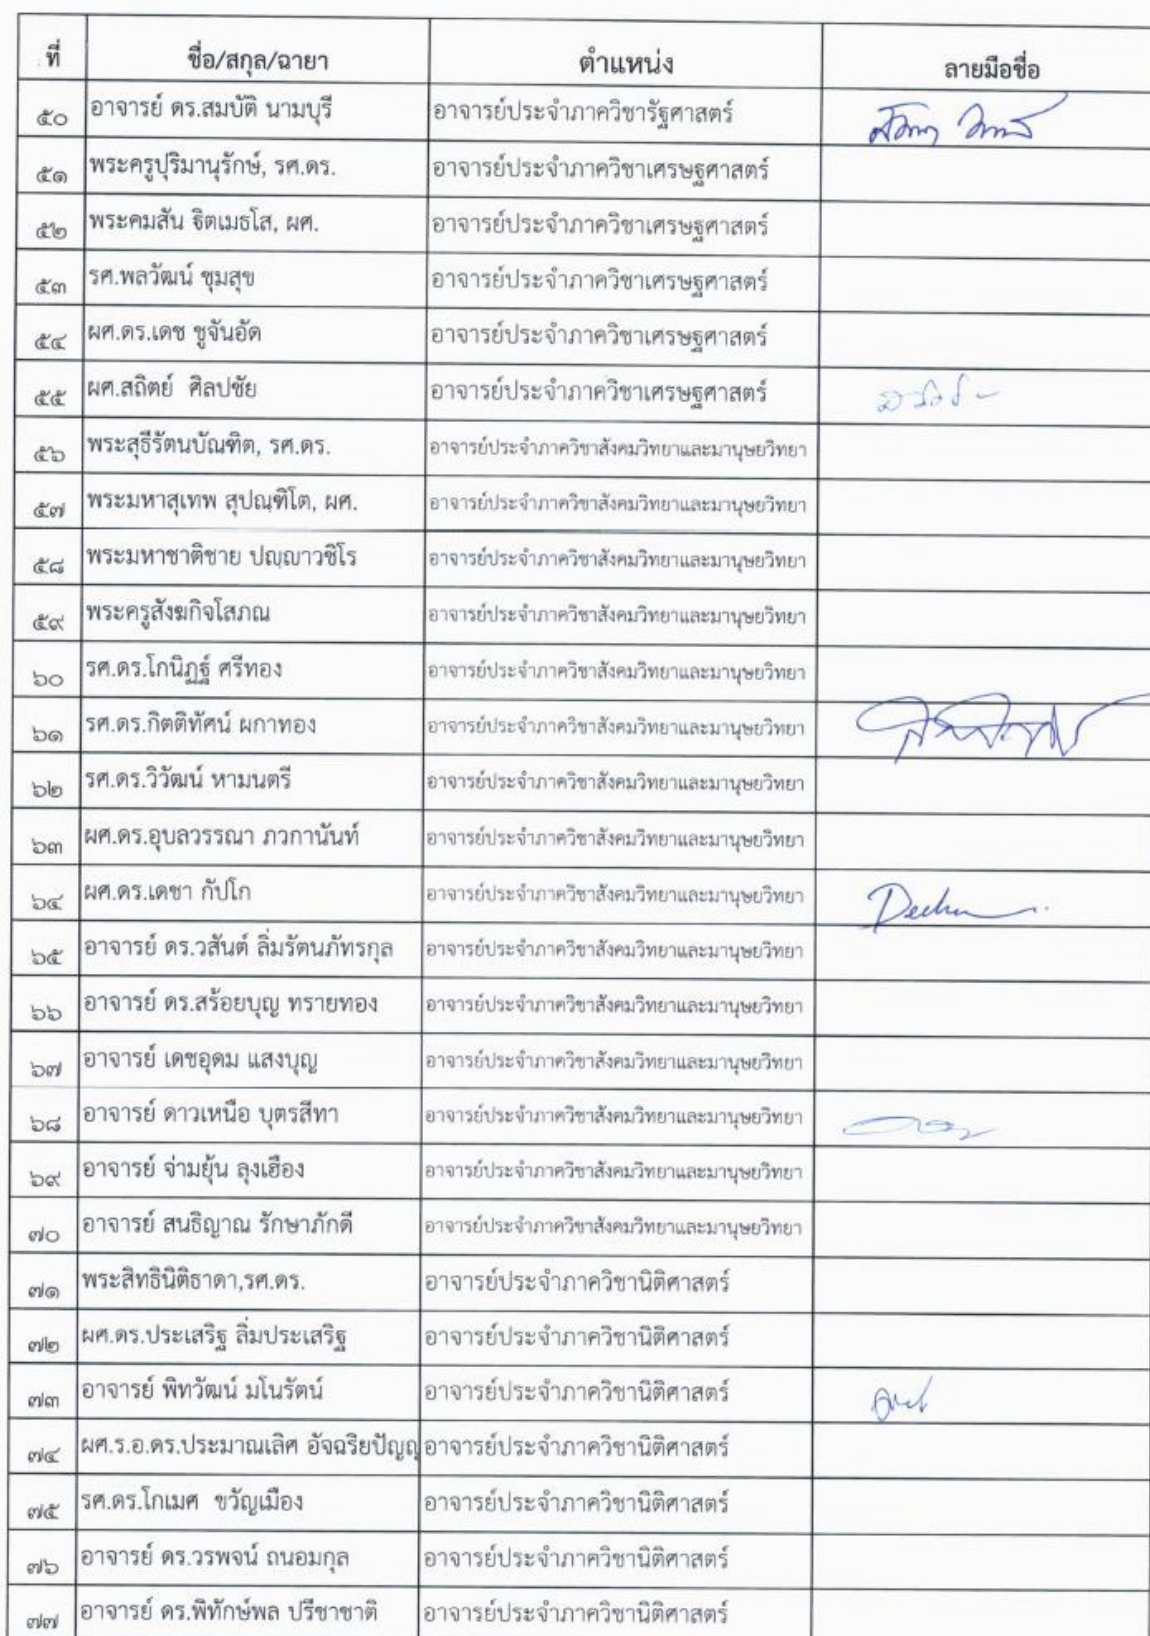 ที่ ชื่อ/สกุล/ฉายา ตำแหน่ง ลายมือชื่อ
๕๐ อาจารย์ ดร.สมบัติ นามบุรี อาจารย์ประจำภาควิชารัฐศาสตร์
๕๑ พระครูปุริมานุรักษ์, รศ.ดร. อาจารย์ประจำภาควิชาเศรษฐศาสตร์
๕๒ พระคมสัน ฐิตเมธโส, ผศ. อาจารย์ประจำภาควิชาเศรษฐศาสตร์
๕๓ รศ.พลวัฒน์ ชุมสุข อาจารย์ประจำภาควิชาเศรษฐศาสตร์
๕๔ ผศ.ดร.เดช ชูจันอัด อาจารย์ประจำภาควิชาเศรษฐศาสตร์
๕๕ ผศ.สถิตย์ ศิลปชัย อาจารย์ประจำภาควิชาเศรษฐศาสตร์
๕๖ พระสุธีรัตนบัณฑิต, รศ.ดร. อาจารย์ประจำภาควิชาสังคมวิทยาและมานุษยวิทยา
๕๗ พระมหาสุเทพ สุปณฺฑิโต, ผศ. อาจารย์ประจำภาควิชาสังคมวิทยาและมานุษยวิทยา
๕๘ พระมหาชาติชาย ปญฺญาวชิโร อาจารย์ประจำภาควิชาสังคมวิทยาและมานุษยวิทยา
๕๙ พระครูสังฆกิจโสภณ อาจารย์ประจำภาควิชาสังคมวิทยาและมานุษยวิทยา
๖๐ รศ.ดร.โกนิฏฐ์ ศรีทอง อาจารย์ประจำภาควิชาสังคมวิทยาและมานุษยวิทยา
๖๑ รศ.ดร.กิตติทัศน์ ผกาทอง อาจารย์ประจำภาควิชาสังคมวิทยาและมานุษยวิทยา
๖๒ รศ.ดร.วิวัฒน์ หามนตรี อาจารย์ประจำภาควิชาสังคมวิทยาและมานุษยวิทยา
๖๓ ผศ.ดร.อุบลวรรณา ภวกานันท์ อาจารย์ประจำภาควิชาสังคมวิทยาและมานุษยวิทยา
๖๔ ผศ.ดร.เดชา กัปโก อาจารย์ประจำภาควิชาสังคมวิทยาและมานุษยวิทยา Decha
๖๕ อาจารย์ ดร.วสันต์ ลิ่มรัตนภัทรกุล อาจารย์ประจำภาควิชาสังคมวิทยาและมานุษยวิทยา
๖๖ อาจารย์ ดร.สร้อยบุญ ทรายทอง อาจารย์ประจำภาควิชาสังคมวิทยาและมานุษยวิทยา
๖๗ อาจารย์ เดชอุดม แสงบุญ อาจารย์ประจำภาควิชาสังคมวิทยาและมานุษยวิทยา
๖๘ อาจารย์ ดาวเหนือ บุตรสีทา อาจารย์ประจำภาควิชาสังคมวิทยาและมานุษยวิทยา
๖๙ อาจารย์ จ่ามยุ้น ลุงเฮือง อาจารย์ประจำภาควิชาสังคมวิทยาและมานุษยวิทยา
๗๐ อาจารย์ สนธิญาณ รักษาภักดี อาจารย์ประจำภาควิชาสังคมวิทยาและมานุษยวิทยา
๗๑ พระสิทธินิติธาดา,รศ.ดร. อาจารย์ประจำภาควิชานิติศาสตร์
๗๒ ผศ.ดร.ประเสริฐ ลิ่มประเสริฐ อาจารย์ประจำภาควิชานิติศาสตร์
๗๓ อาจารย์ พิทวัฒน์ มโนรัตน์ อาจารย์ประจำภาควิชานิติศาสตร์
๗๔ ผศ.ร.อ.ดร.ประมาณเลิศ อัจฉริยปัญญ อาจารย์ประจำภาควิชานิติศาสตร์
๗๕ รศ.ดร.โกเมศ ขวัญเมือง อาจารย์ประจำภาควิชานิติศาสตร์
๗๖ อาจารย์ ดร.วรพจน์ ถนอมกุล อาจารย์ประจำภาควิชานิติศาสตร์
๗๗ อาจารย์ ดร.พิทักษ์พล ปรีชาชาติ อาจารย์ประจำภาควิชานิติศาสตร์